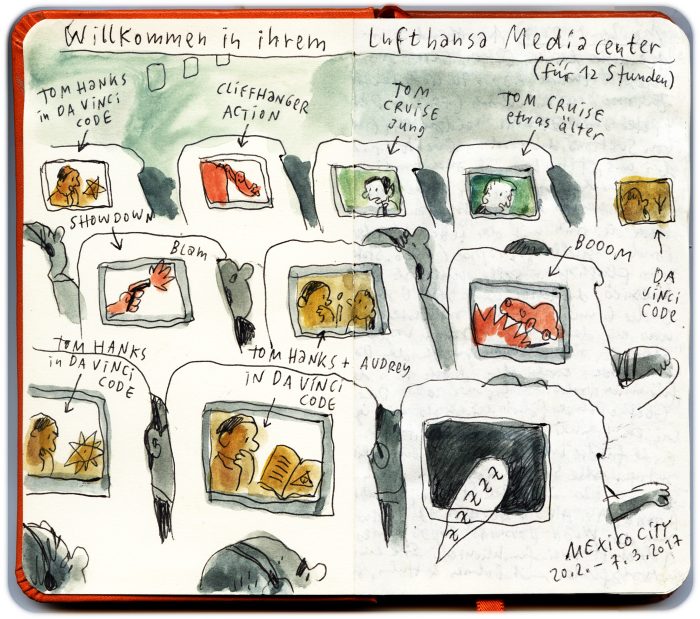 Willkommen in ihrem Lufthansa Mediacenter
(für 12 Stunden)
TOM HANKS
in DA VINCI
CODE
CLIFFHANGER
ACTION
TOM
CRUISE
jung
TOM CRUISE
etwas älter
SHOWDOWN
BLAM
BOOOM
DA
VINCI
CODE
TOM HANKS
in DA VINCI
CODE
TOM HANKS + AUDREY
IN DA VINCI
CODE
z z z z z
MEXICO CITY
20.2. – 7.3.2017